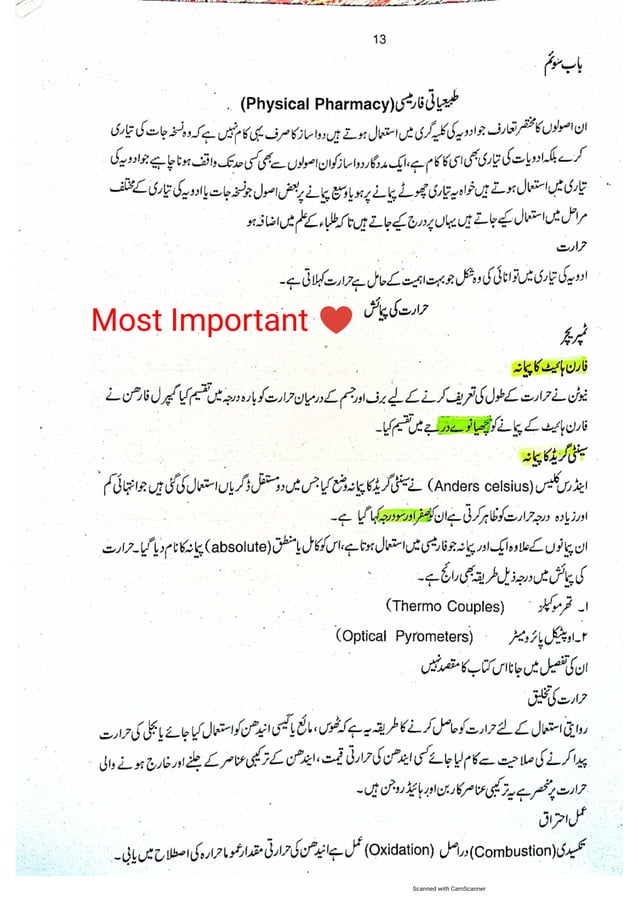 13
باب سوئم
طبیعیاتی فارمیسی (Physical Pharmacy)
ان اصولوں کا مختصر تعارف جو ادویہ کی کلیہ گری میں استعمال ہوتے ہیں دواساز کا صرف یہی کام نہیں ہے کہ وہ نسخہ جات کی تیاری
کرے بلکہ ادویات کی تیاری بھی اسی کا کام ہے، ایک مددگار دواساز کو ان اصولوں سے بھی کسی حد تک واقف ہونا چاہیے جو ادویہ کی
تیاری میں استعمال ہوتے ہیں خواہ یہ تیاری چھوٹے پیمانے پر ہو یا وسیع پیمانے پر بعض اصول جو نسخہ جات یا ادویہ کی تیاری کے مختلف
مراحل میں استعمال کیے جاتے ہیں یہاں پر درج کیے جاتے ہیں تاکہ طلباء کے علم میں اضافہ ہو
حرارت
ادویہ کی تیاری میں توانائی کی وہ شکل جو بہت اہمیت کے حامل ہے حرارت کہلاتی ہے۔
حرارت کی پیمائش
Most Important ❤
ٹمپریچر
فارن ہائیٹ کا پیمانہ
نیوٹن نے حرارت کے طول کی تعریف کرنے کے لیے برف اور جسم کے درمیان حرارت کو بارہ درجہ میں تقسیم کیا گیبرل فارھن نے
فارن ہائیٹ کے پیمانے کو چھیانوے درجے میں تقسیم کیا۔
سینٹی گریڈ کا پیمانہ
اینڈرس کلیس (Anders celsius) نے سینٹی گریڈ کا پیمانہ وضع کیا جس میں دو مستقل ڈگریاں استعمال کی گئی ہیں جو انتہائی کم
اور زیادہ درجہ حرارت کو ظاہر کرتی ہے ان کو صفر اور سو درجہ کہا گیا ہے۔
ان پیمانوں کے علاوہ ایک اور پیمانہ جو فارمیسی میں استعمال ہوتا ہے، اس کو کامل یا منطق (absolute) پیمانہ کا نام دیا گیا۔ حرارت
کی پیمائش میں درجہ ذیل طریقہ بھی رائج ہے۔
۱۔ تھرموکپلز (Thermo Couples)
۲۔ اوپٹیکل پائرومیٹر (Optical Pyrometers)
ان کی تفصیل میں جانا اس کتاب کا مقصد نہیں
حرارت کی تخلیق
روایتی استعمال کے لئے حرارت کو حاصل کرنے کا طریقہ یہ ہے کہ ٹھوس، مائع یا گیسی ایندھن کو استعمال کیا جائے یا بجلی کی حرارت
پیدا کرنے کی صلاحیت سے کام لیا جائے کسی ایندھن کی حرارتی قیمت، ایندھن کے ترکیبی عناصر کے جلنے اور خارج ہونے والی
حرارت پر منحصر ہے یہ ترکیبی عناصر کاربن اور ہائیڈروجن ہیں۔
عمل احتراق
تکسیدی (Combustion) دراصل (Oxidation) عمل ہے انیدھن کی حرارتی مقدار عموما حرارہ کی اصطلاح میں یابی۔
Scanned with CamScanner